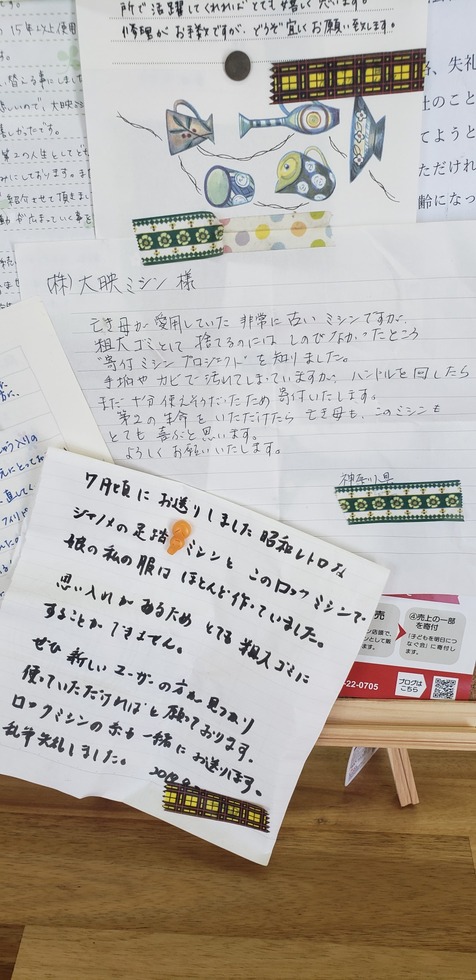 所で活躍してくれればとても嬉しく思います。
修理がお手数ですが、どうぞ宜しくお願い致します。
15年以上使用
第2の人生としても
、失礼
てようと
ただけれ
齢になっ
(株)大映ミシン 様
亡き母が愛用していた 非常に古い ミシンですが、
粗大ゴミとして 捨てるのには しのびなかったところ
"寄付ミシンプロジェクト"を知りました。
手垢や カビで汚れてしまっていますが、ハンドルを回したら
まだ十分使えそうだったため寄付いたします。
第2の生命を いただけたら 亡き母も、このミシンも
とても 喜ぶと思います。
よろしくお願いいたします。
神奈川県
7月頃に お送りしました 昭和レトロな
ジャノメの足踏ミシンと このロックミシンで
娘の私の服は ほとんど作っていました。
思い入れが あるため とても 粗大ゴミに
することができません。
ぜひ 新しいユーザーの方が見つかり
使っていただければと願っております。
ロックミシンの糸も一緒にお送りします。
乱筆失礼しました。
売
④売上の一部
を寄付
「子どもを明日につ
なぐ会」に寄付し
ます。
-22-0705
ブログは
こちら